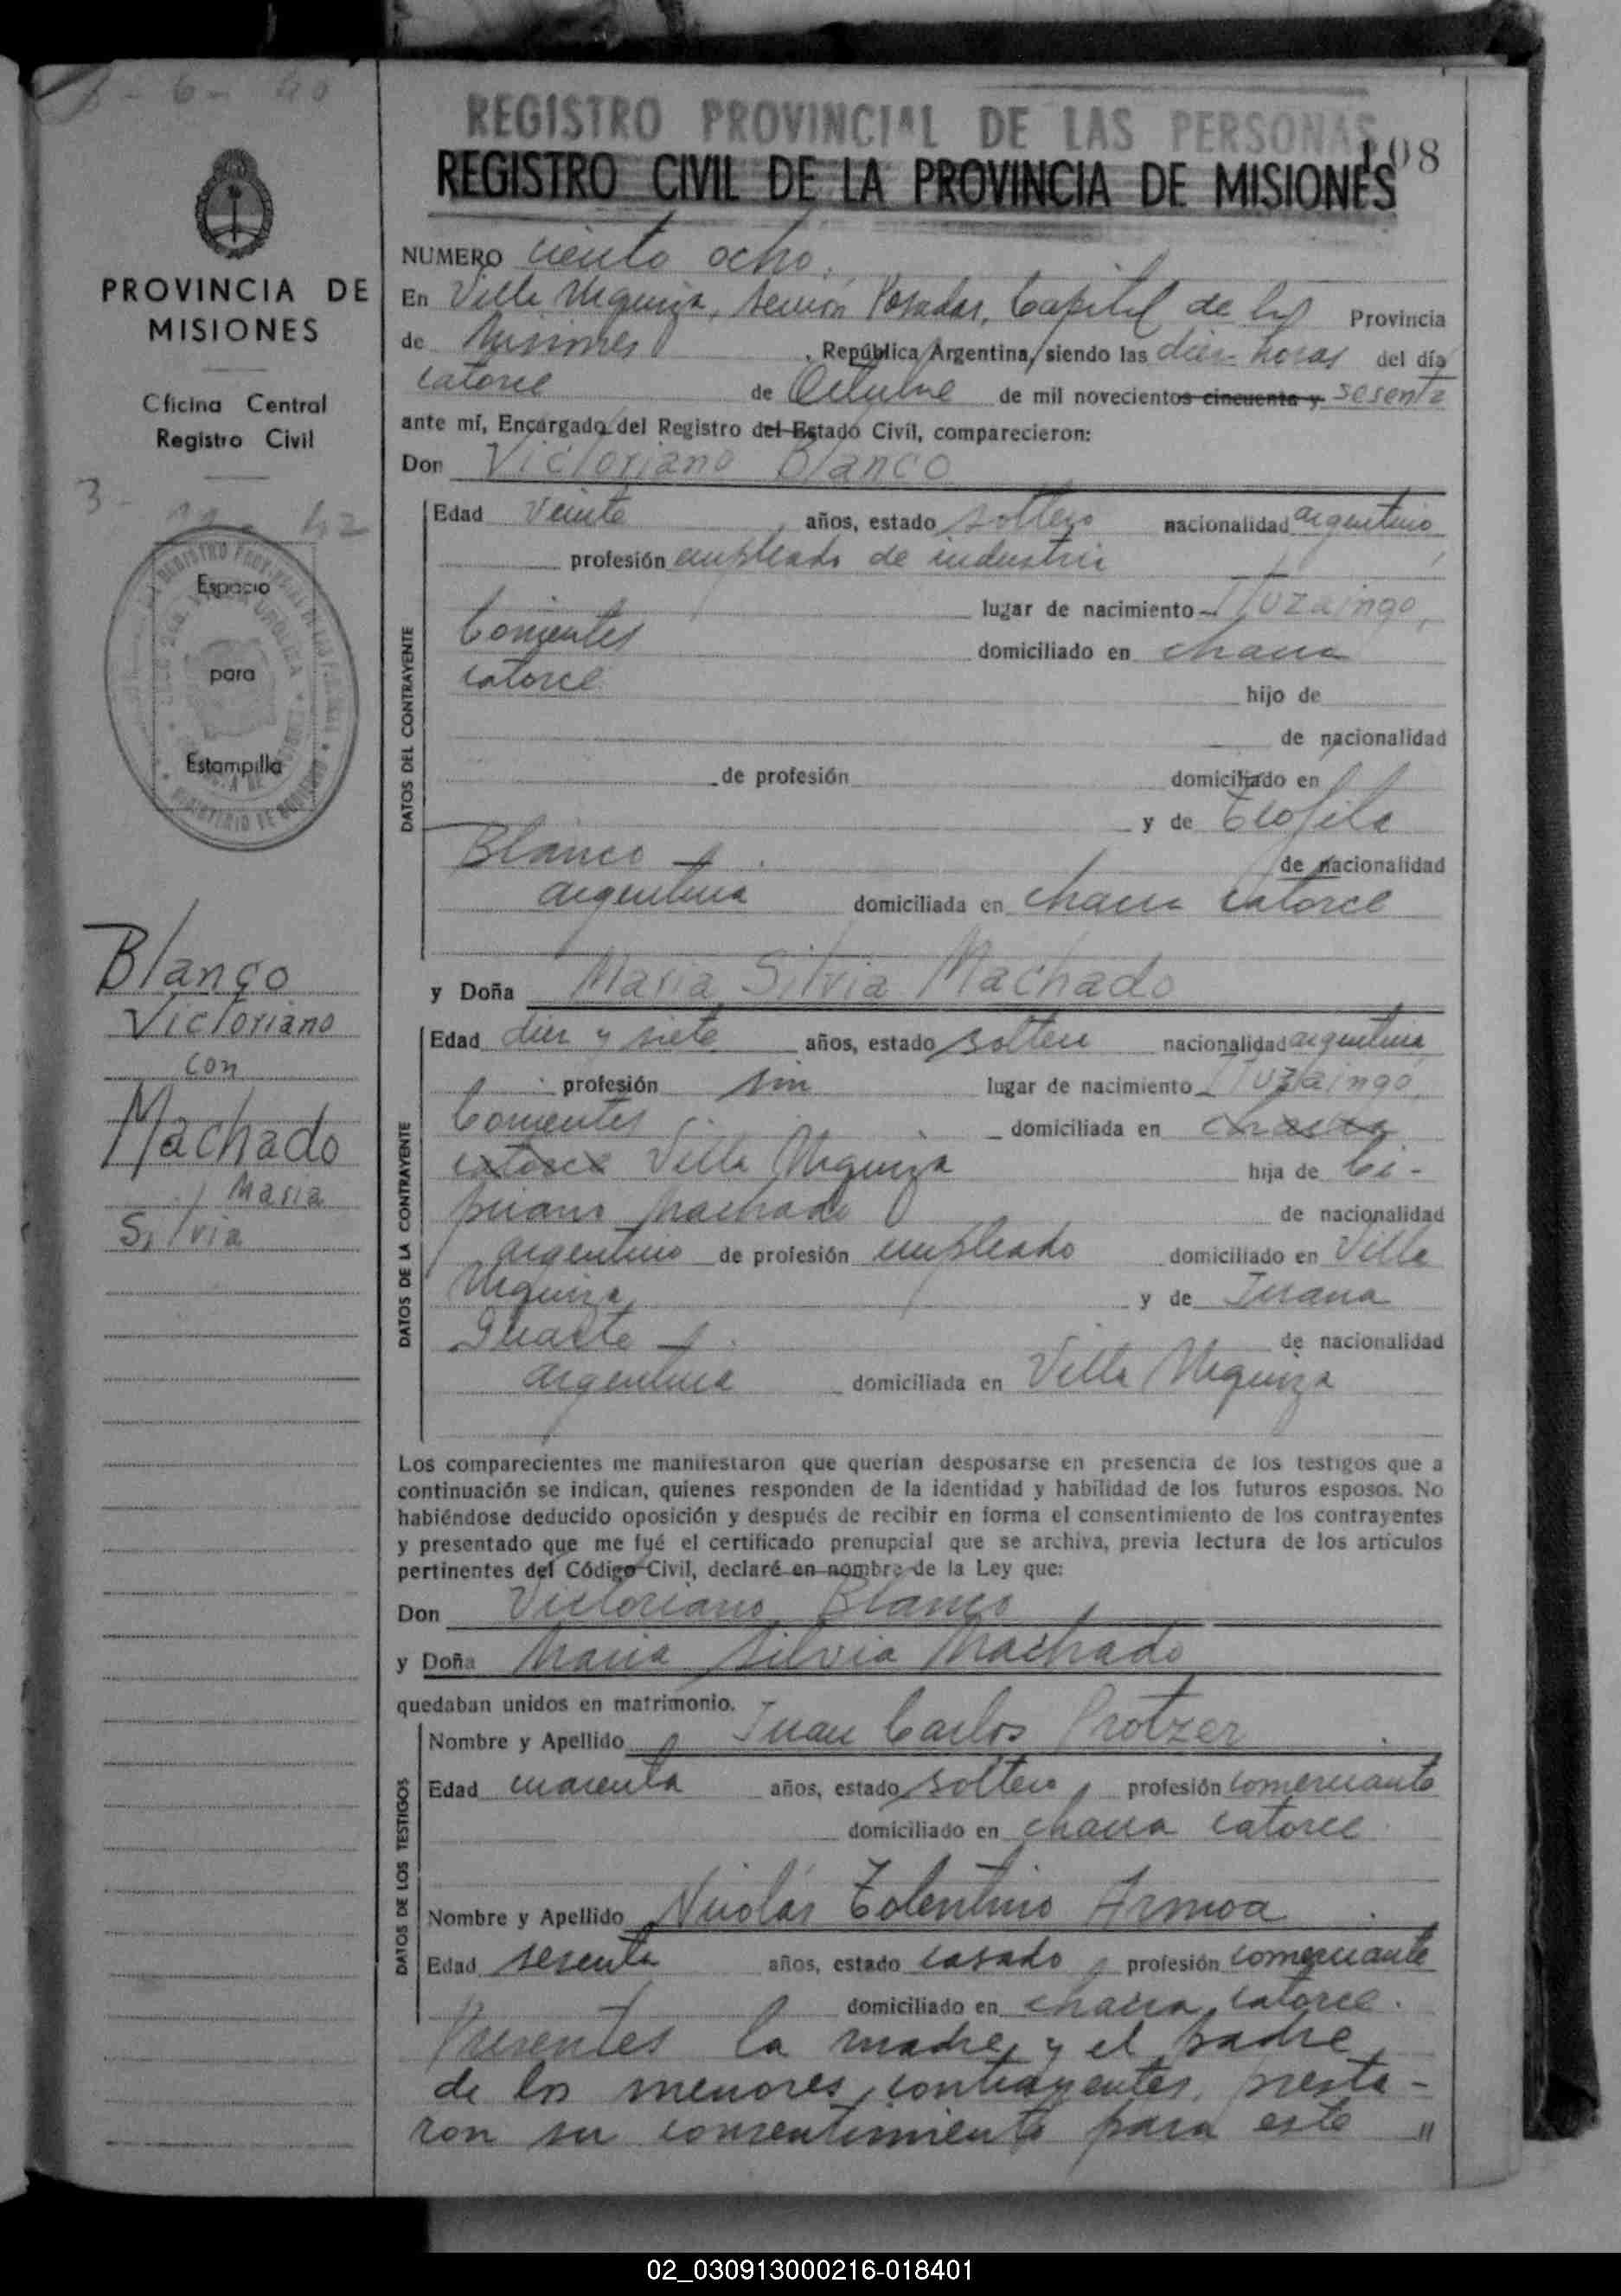 6 - 40
PROVINCIA DE
MISIONES
Oficina Central
Registro Civil
3 - 11 - 42
Espacio
para
Estampilla
Blanco
Victoriano
con
Machado
Maria
Silvia
REGISTRO PROVINCIAL DE LAS PERSONAS
108
REGISTRO CIVIL DE LA PROVINCIA DE MISIONES
NUMERO ciento ocho.
En Villa Urquiza, sección Posadas, Capital de la Provincia
de Misiones, República Argentina, siendo las diez horas del día
catorce de Octubre de mil novecientos cincuenta y sesenta
ante mí, Encargado del Registro del Estado Civil, comparecieron:
Don Victoriano Blanco
DATOS DEL CONTRAYENTE
Edad veinte años, estado soltero nacionalidad argentino,
profesión empleado de industria
lugar de nacimiento Ituzaingo,
Corrientes domiciliado en chacra
catorce hijo de
de nacionalidad
de profesión domiciliado en
y de Teofila
Blanco de nacionalidad
argentina domiciliada en chacra catorce
y Doña Maria Silvia Machado
DATOS DE LA CONTRAYENTE
Edad diez y siete años, estado soltera nacionalidad argentina,
profesión sin lugar de nacimiento Ituzaingo,
Corrientes domiciliada en chacra
catorce Villa Urquiza hija de Ci-
priano Machado de nacionalidad
argentino de profesión empleado domiciliado en Villa
Urquiza y de Juana
Duarte de nacionalidad
argentina domiciliada en Villa Urquiza
Los comparecientes me manifestaron que querían desposarse en presencia de los testigos que a
continuación se indican, quienes responden de la identidad y habilidad de los futuros esposos. No
habiéndose deducido oposición y después de recibir en forma el consentimiento de los contrayentes
y presentado que me fué el certificado prenupcial que se archiva, previa lectura de los artículos
pertinentes del Código Civil, declaré en nombre de la Ley que:
Don Victoriano Blanco
y Doña Maria Silvia Machado
quedaban unidos en matrimonio.
DATOS DE LOS TESTIGOS
Nombre y Apellido Juan Carlos Protzer
Edad cuarenta años, estado soltero, profesión comerciante
domiciliado en chacra catorce.
Nombre y Apellido Nicolás Tolentino Armoa
Edad sesenta años, estado casado, profesión comerciante
domiciliado en chacra catorce.
Presentes la madre y el padre
de los menores contrayentes, presta-
ron su consentimiento para este "
02_030913000216-018401